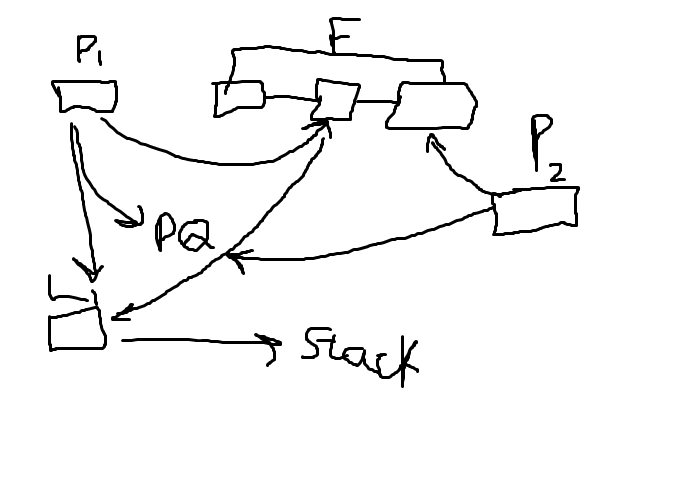 P1
F
P2
PQ
L1
Stack